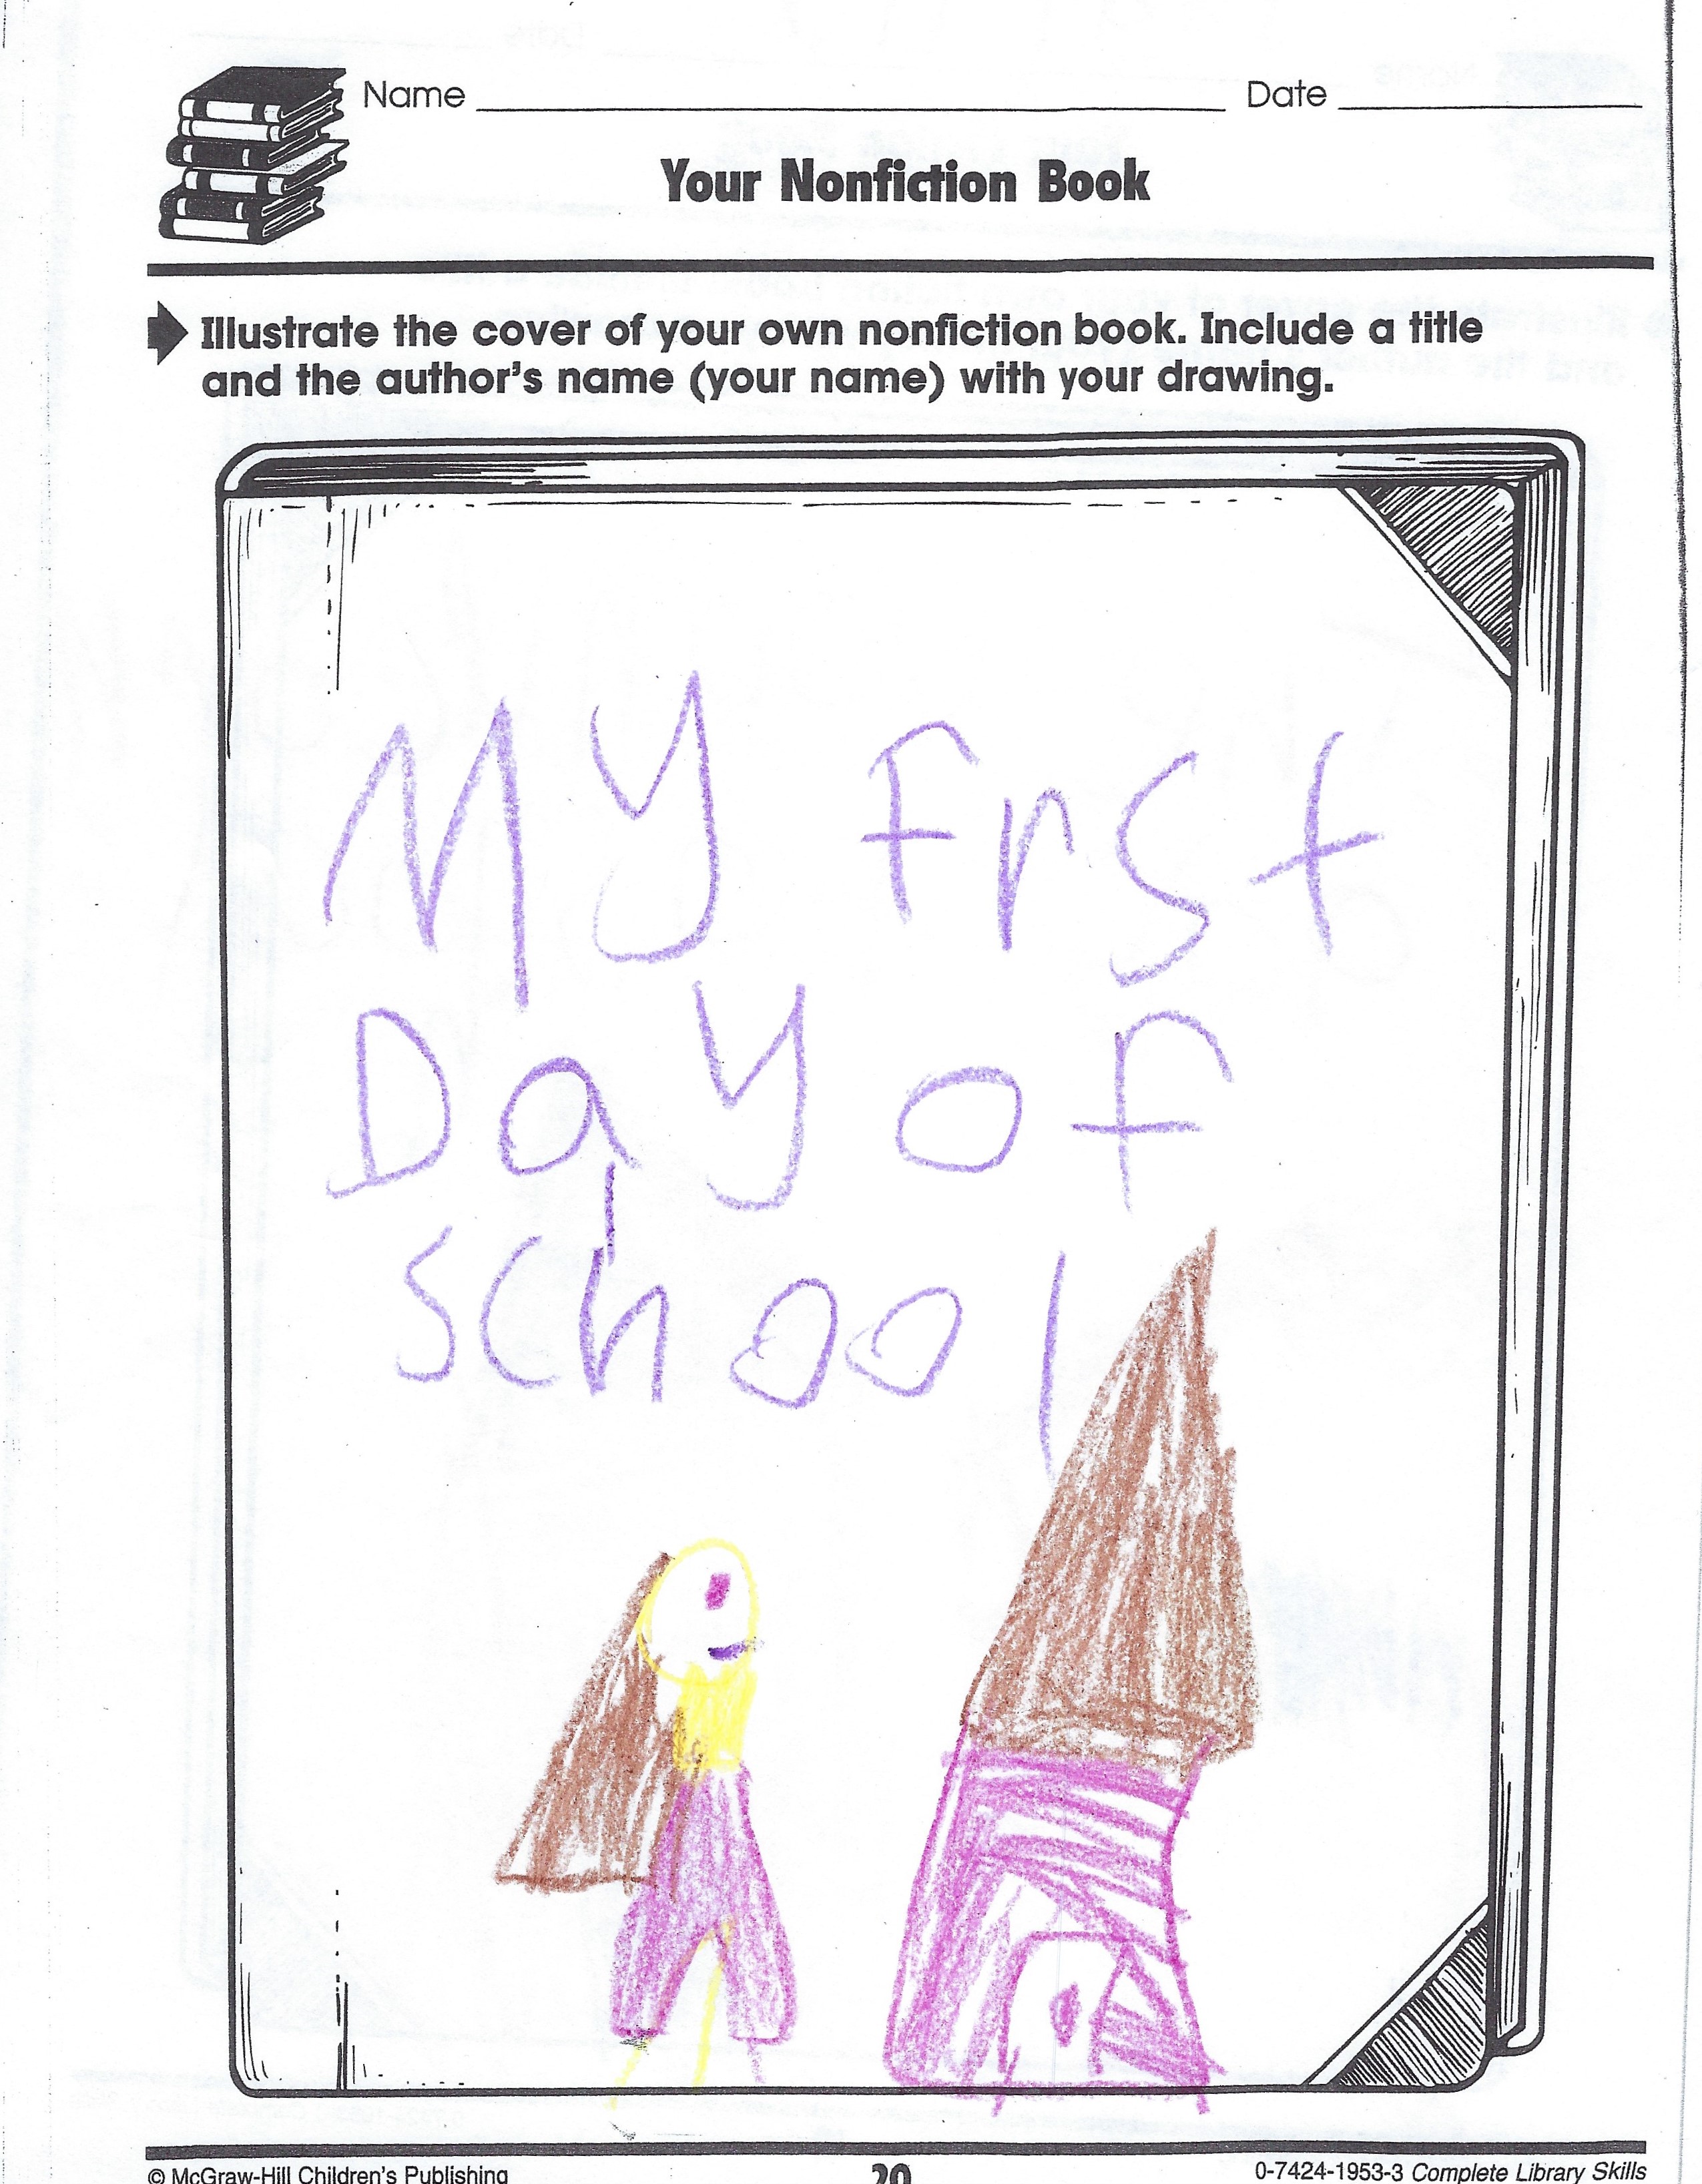 Name Date
Your Nonfiction Book
Illustrate the cover of your own nonfiction book. Include a title
and the author's name (your name) with your drawing.
My frst
Day of
school
© McGraw-Hill Children's Publishing 20 0-7424-1953-3 Complete Library Skills